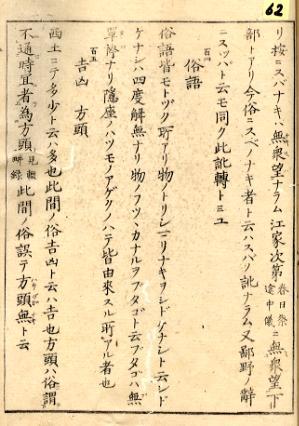 62
リ按ニスバナキハ無衆望ナラム江家次第春日祭途中儀ニ無衆望下
部トアリ今俗ニスベノナキ者ト云ハスバノ訛ナラム又鄙野ノ辭
ニスツバト云モ同ク此訛轉トミユ
百四 俗語
俗語皆モトヅク所アリ物トリシマリナキヲシドケナシト云シド
ケナシハ四度解無ナリ物ノフツヽカナルヲブタゴト云ブタゴハ無
單際ナリ隱座ノハツモノアゲクノハテ皆由來スル所アル者也
百五 吉凶 方頭
西土ニテ多少ト云ハ多也此間ノ俗吉凶ト云ハ吉也方頭ハ俗謂
不通時宜者為方頭見輟畊録此間ノ俗誤テ方頭無ト云